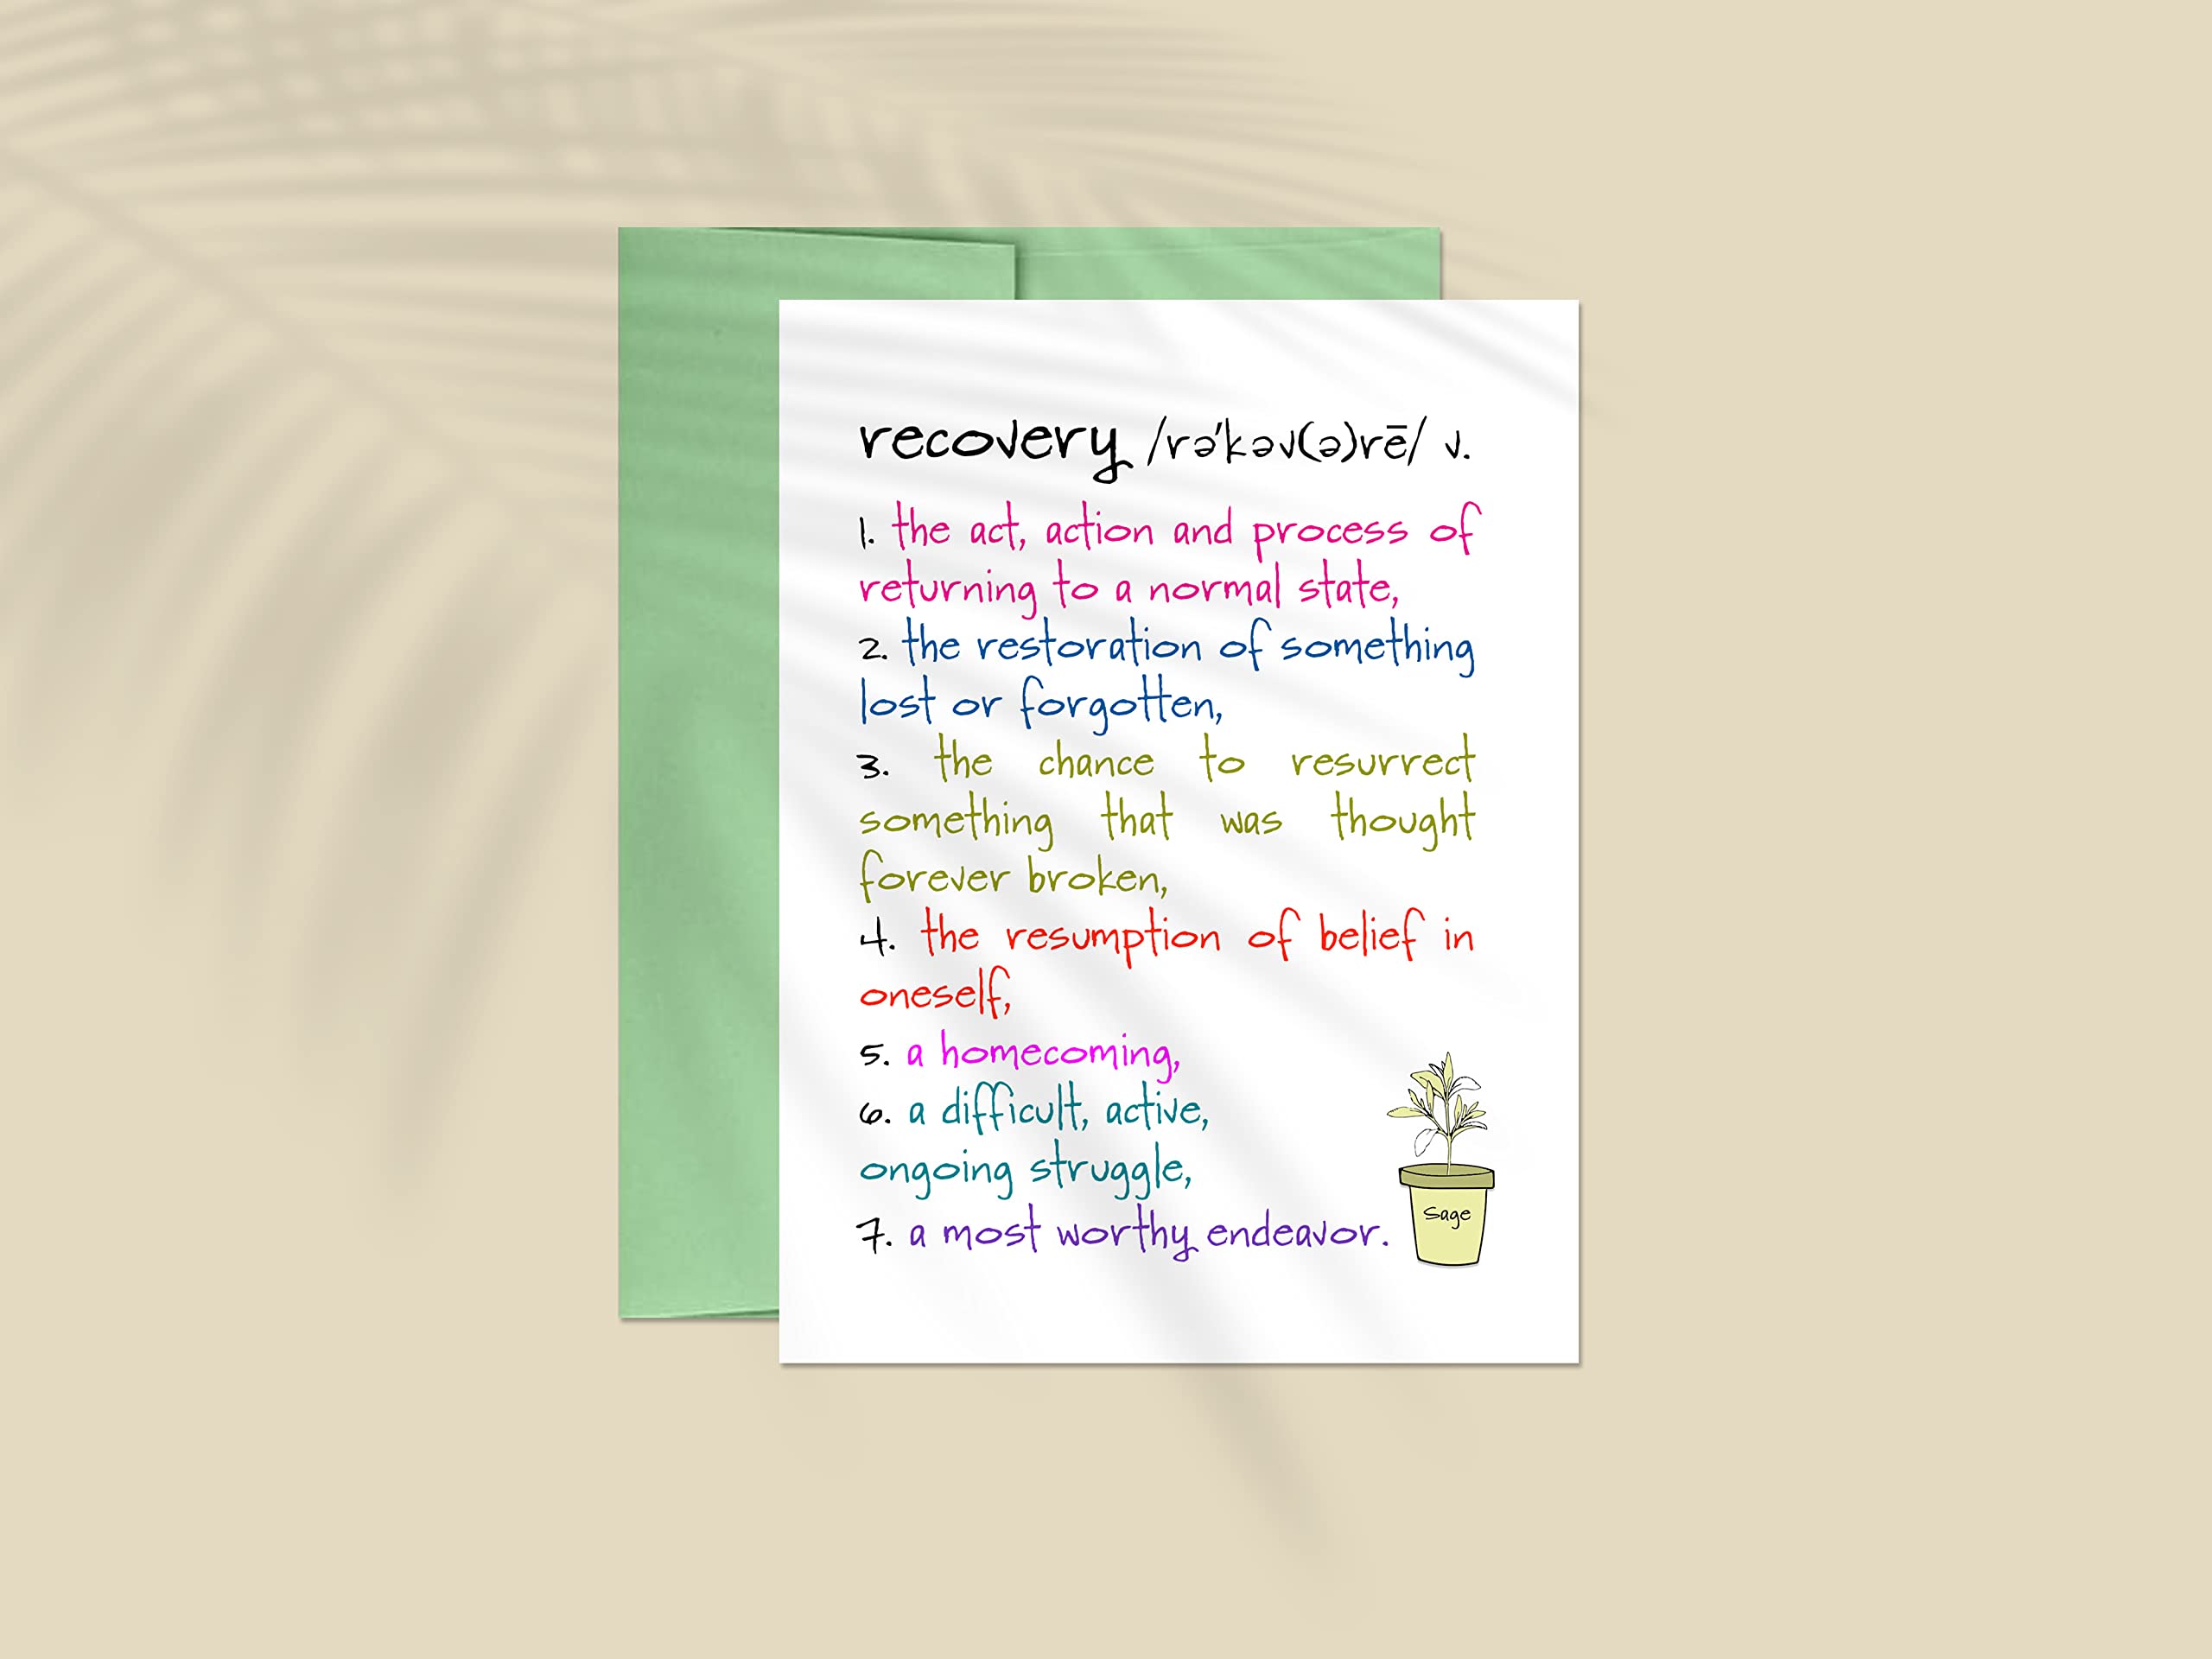 recovery /rə'kəv(ə)rē/ v.
1. the act, action and process of
returning to a normal state,
2. the restoration of something
lost or forgotten,
3. the chance to resurrect
something that was thought
forever broken,
4. the resumption of belief in
oneself,
5. a homecoming,
6. a difficult, active,
ongoing struggle,
7. a most worthy endeavor.
Sage